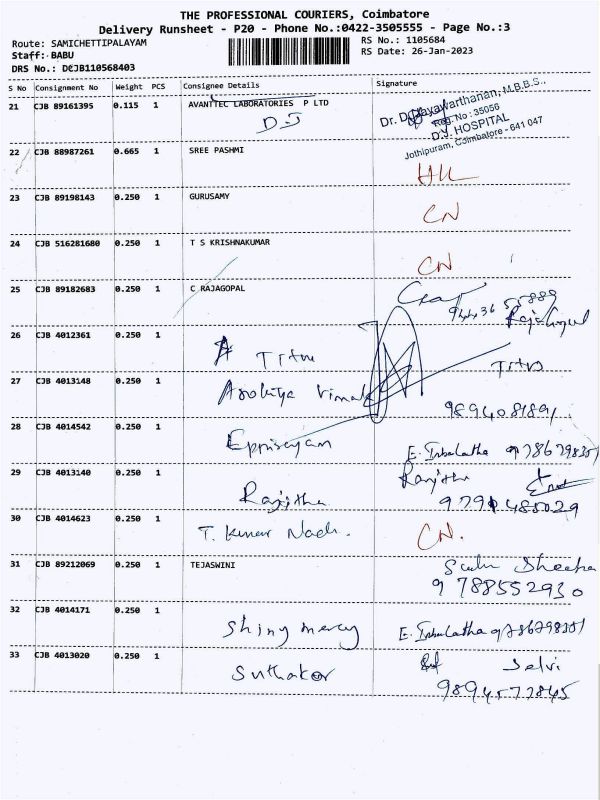 THE PROFESSIONAL COURIERS, Coimbatore
Delivery Runsheet - P20 - Phone No.:0422-3505555 - Page No.:3
Route: SAMICHETTIPALAYAM
RS No.: 1105684
Staff: BABU
RS Date: 26-Jan-2023
DRS No.: DCJB110568403
S No Consignment No Weight PCS Consignee Details Signature
21 CJB 89161395 0.115 1 AVANTTEC LABORATORIES P LTD
D.J
Dr. D. Jayawarthanan, M.B.B.S.,
Reg.No: 35056
D.J. HOSPITAL
Jothipuram, Coimbatore - 641 047
22 CJB 88987261 0.665 1 SREE PASHMI
23 CJB 89198143 0.250 1 GURUSAMY
CN
24 CJB 516281680 0.250 1 T S KRISHNAKUMAR
CN
25 CJB 89182683 0.250 1 C RAJAGOPAL
Rajagopal
26 CJB 4012361 0.250 1
A Titus
Titus
27 CJB 4013148 0.250 1
Arokiya Vimal
9894081891
28 CJB 4014542 0.250 1
E. Inbalatha 9786798351
29 CJB 4013140 0.250 1
Ranjitha
Ranjitha
9791485029
30 CJB 4014623 0.250 1
T. Kumar
CN.
31 CJB 89212069 0.250 1 TEJASWINI
9788552930
32 CJB 4014171 0.250 1
Shiny mercy
E. Inbalatha 9786798351
33 CJB 4013020 0.250 1
Suthakar
Selvi
9894577845